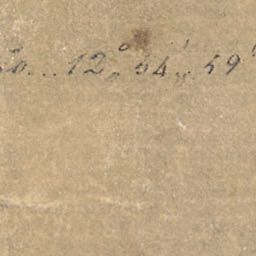 ...12° 54' 59"